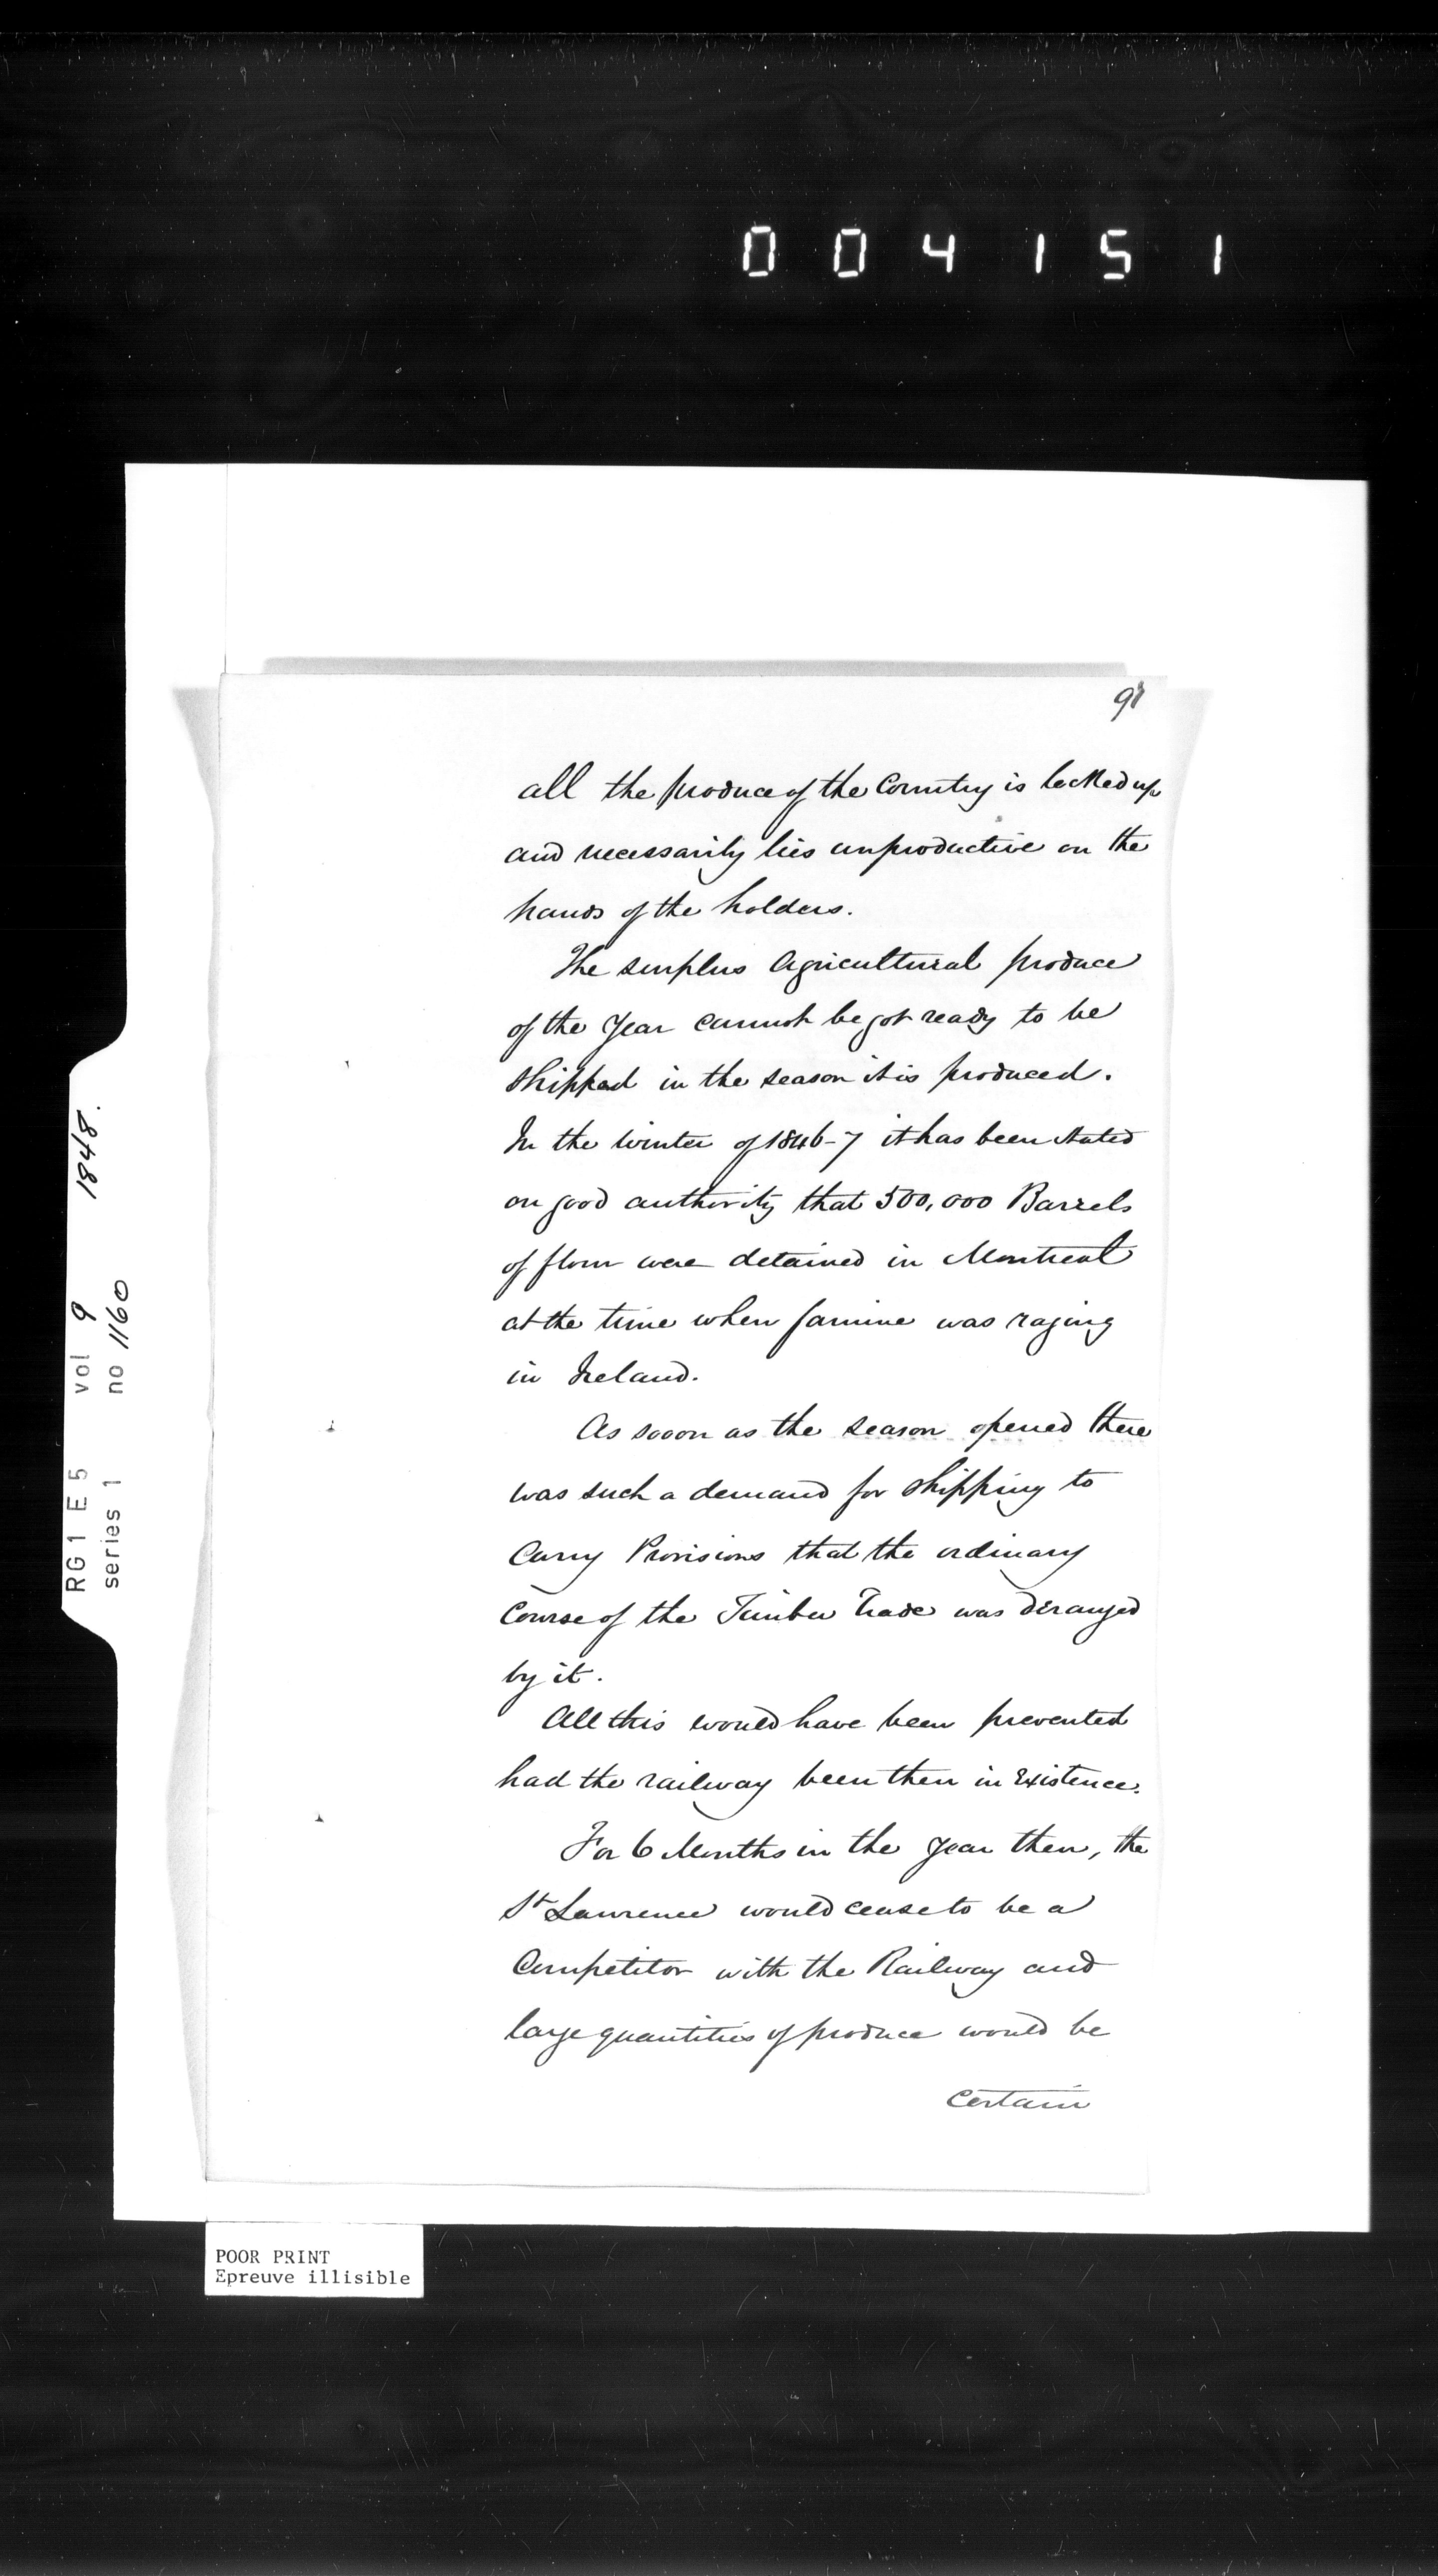 004151
all the produce of the Country is locked up
and necessarily lies unproductive on the
hands of the holders.
The surplus Agricultural produce
of the Year cannot be got ready to be
shipped in the season it is produced.
In the Winter of 1846-7 it has been stated
on good authority that 500,000 Barrels
of flour were detained in Montreal
at the time when famine was raging
in Ireland.
As sooon as the season opened there
was such a demand for shipping to
Carry Provisions that the ordinary
Course of the Timber Trade was deranged
by it.
All this would have been prevented
had the railway been then in Existence.
For 6 Months in the Year then, the
St Lawrence would cease to be a
Competitor with the Railway and
large quantities of produce would be
Certain
RG1 E5 vol 9 1848.
series 1 no 1160
POOR PRINT
Epreuve illisible